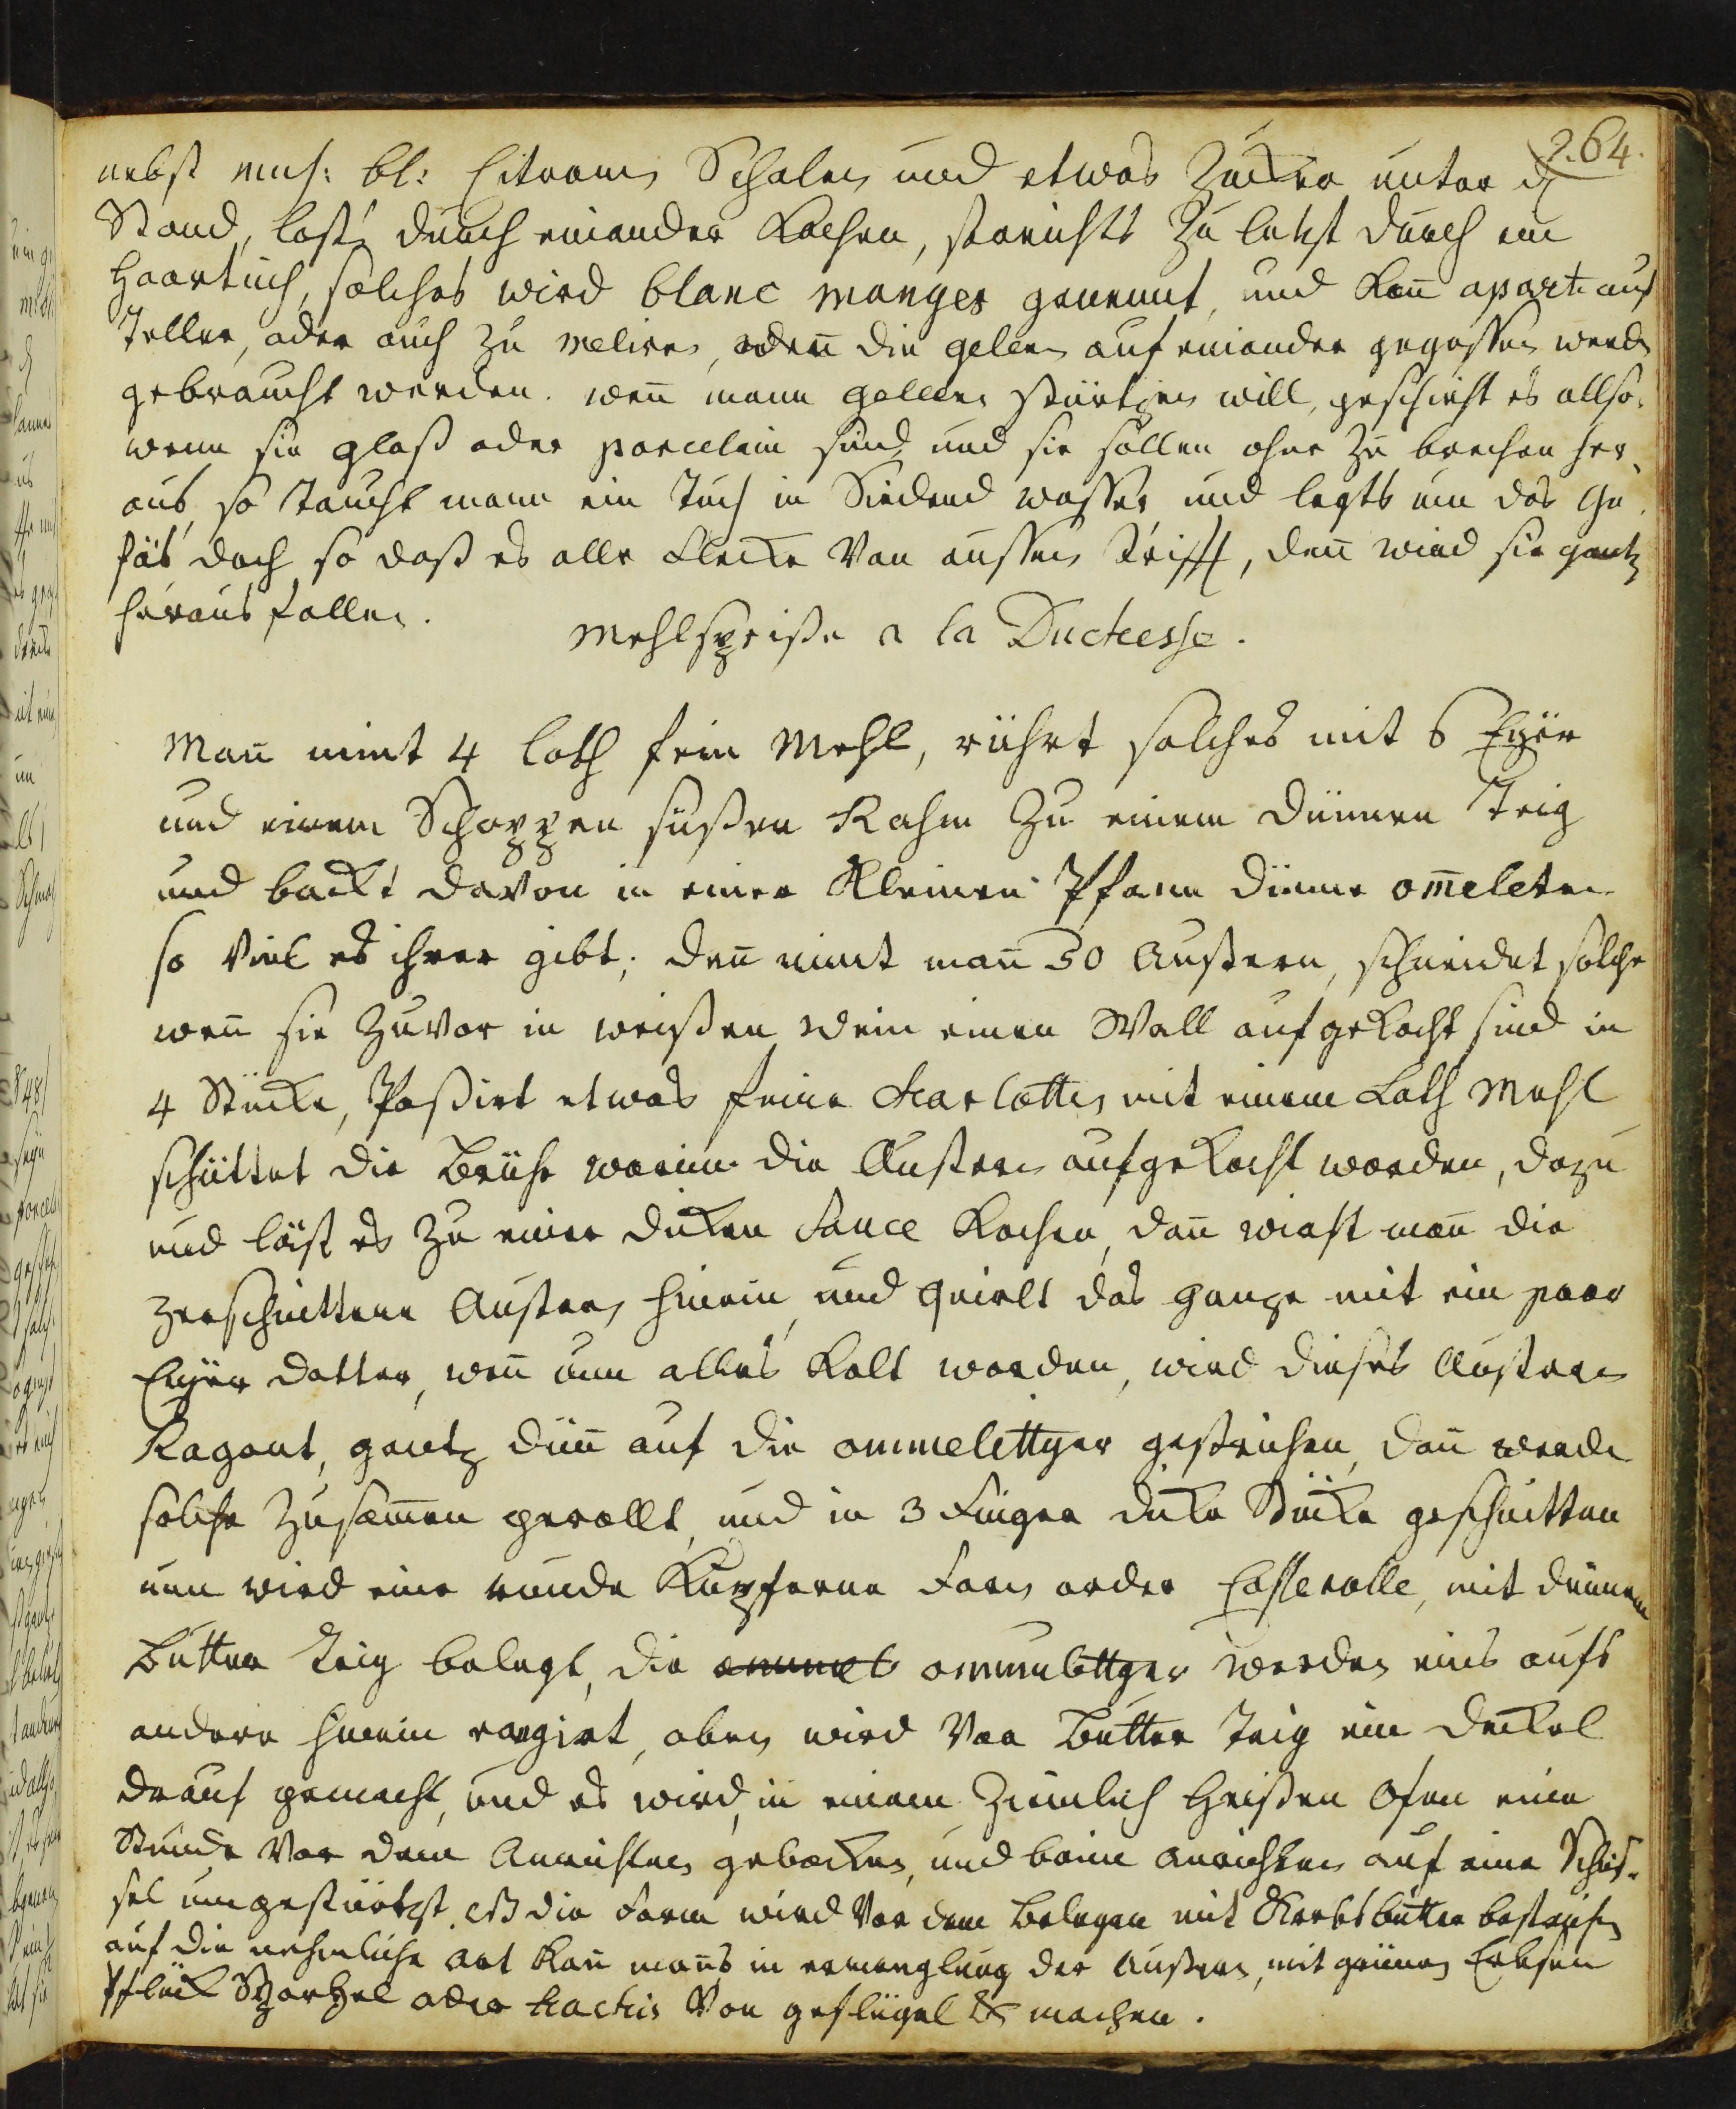 264.
nebst mus: bl: Citronen Schalen und etwas Zucker unter
Stand, last durch einander Kochen, streichts Zu letzt durch ein
Haartuch, solches wird blanc manger genennt, und kan̄ aparte auf
Teller, oder auch zu melires, wen̄ die geleen auf einander gegossen werden
gebraucht werden. wen̄ mann geleen stürtzen will, geschieht es allso.
wenn sie glaß oder porcelain sind, und sie sollen ohne zu brechen her¬
aus, so taucht mann ein Tuch in Siedend wasser und legts um das Ge¬
fäs doch so daß es alle Flecke von aussen trifft, den̄ wird sie gantz
heraus fallen.
Mehlspeiße a la Duchesse.
Man̄ nimt 4 loth fein Mehl, rührt solches mit 6 Eyer
und einem Schoppen süßen Rahm zu einem dünnen Teig
und backt davon in einer Kleinen Pfann dünne om̄eleten
so viel es ihrer gibt; den̄ nimt man̄ 50 Austern, schneidet solche
wen̄ sie Zuvor in weißen Wein einen Wall aufgekocht sind in
4 Stücke, Paßirt etwas feine charlotten mit einem Loth Mehl
schüttet die Brühe worinn die Austern aufgekocht worden, dazu
und läst es zu einer dicken Sauce kochen, dan̄ wirft man̄ die
zerschnittene Austern hinein, und Quirlt das ganze mit ein paar
Eyer dotter, wen̄ nun alles kalt worden, wird dieses Austern
Ragout, gantz dün̄ auf die ommelettger gestrichen, dan̄ werden
solche zusam̄en gerollt, und in 3 Finger dicke Stücke geschnitten
nun wird eine runde Kupferne Form oder Casserolle, mit dünnem
Butter Teig belegt, die ommelettger werden eins aufs
andere hinein rangirt, oben wird von Butter Teig ein Deckel
drauf gemacht, und es wird in einem Ziemlich Heißen Ofen eine
Stunde vor dem Anrichten gebacken, und beim anrichten auf eine Schüs¬
sel umgestürtzt. die Form wird vor dem Belegen mit Krebsbutter bestrichen
auf die nehmliche art kan̄ man̄s in ermanglung der Austern, mit grünen Erbsen
Pflück Sparchel oder hachis von geflügel &c machen.